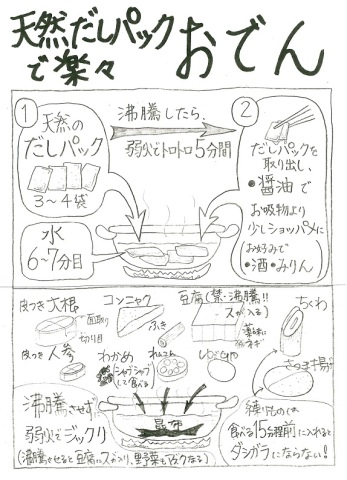 天然だしパック
で楽々
おでん
①
天然の
だしパック
3～4袋
沸騰したら、
弱火でトロトロ5分間
②
だしパックを
取り出し、
●醤油で
お吸物より
少しショッパメに
お好みで
●酒●みりん
水
6～7分目
皮つき大根
面取り
切り目
コンニャク
ふき
豆腐(禁・沸騰!!
スが入る)
薬味に
ネギ
ちくわ
皮つき人参
わかめ
シャブシャブ
して食べる
れんこん
ゆで卵
さつま揚げ
沸騰させず、
弱火でジックリ
(沸騰させると豆腐にスが入り、野菜も固くなる)
昆布
練りものは
食べる15分程前に入れると
ダシガラにならない!